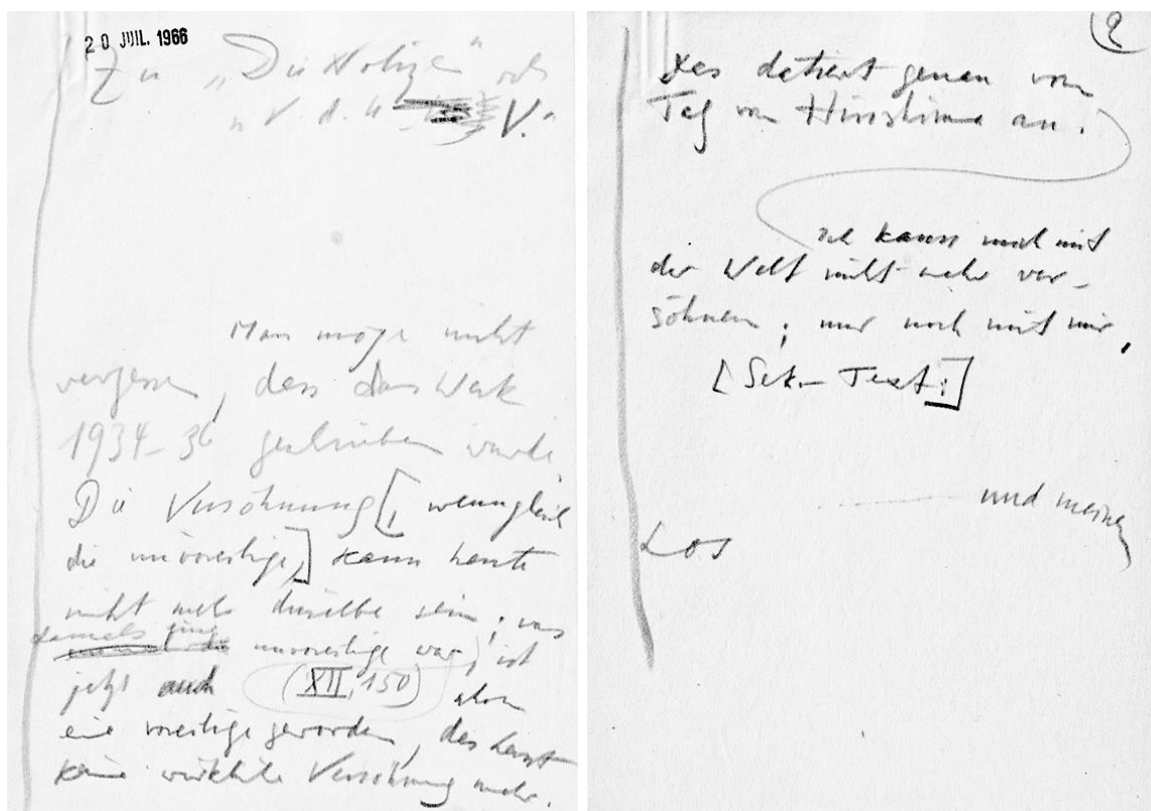 20 JUIL. 1966
Zu „Die Notizen" oder
„V. d. U. V."
Man möge nicht
vergessen, dass das Werk
1934-36 geschrieben wurde.
Die Versöhnung[, wenngleich
die unvoreilige,] kann heute
nicht mehr dieselbe sein; was
damals eine unvoreilige war, ist
jetzt auch (XII, 150) schon
eine voreilige geworden, das heisst
keine wirkliche Versöhnung mehr.
2
Das datiert genau vom
Tag von Hiroshima an.
Ich kann mich mit
der Welt nicht mehr ver-
söhnen; nur noch mit mir,
[Sek. Text:]
und meinem
Los